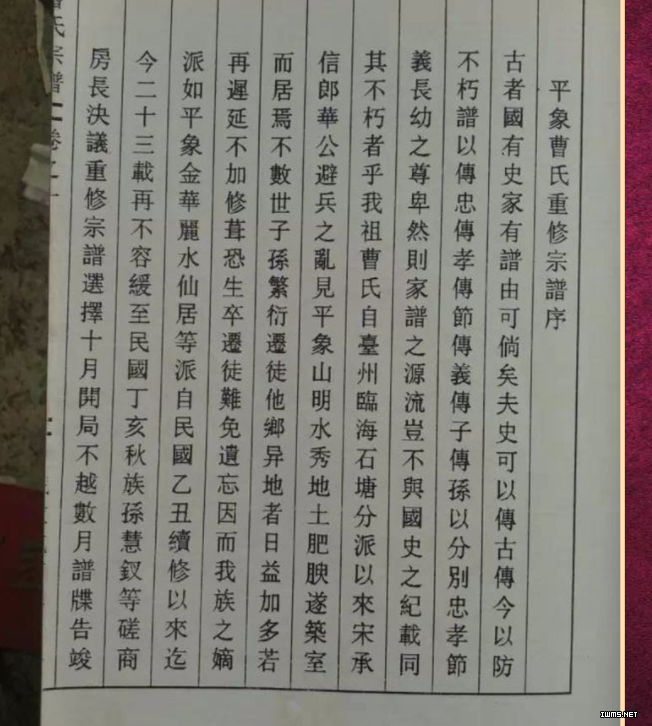 平象曹氏重修宗譜序
古者國有史家有譜由可倘矣夫史可以傳古傳今以防
不朽譜以傳忠傳孝傳節傳義傳子傳孫以分別忠孝節
義長幼之尊卑然則家譜之源流豈不與國史之紀載同
其不朽者乎我祖曹氏自臺州臨海石塘分派以來宋承
信郎華公避兵之亂見平象山明水秀地土肥腴遂築室
而居焉不數世子孫繁衍遷徒他鄉异地者日益加多若
再遲延不加修葺恐生卒遷徒難免遺忘因而我族之嫡
派如平象金華麗水仙居等派自民國乙丑續修以來迄
今二十三載再不容緩至民國丁亥秋族孫慧釵等磋商
房長決議重修宗譜選擇十月開局不越數月譜牒告竣
氏宗譜 卷之一
IWMS.NET